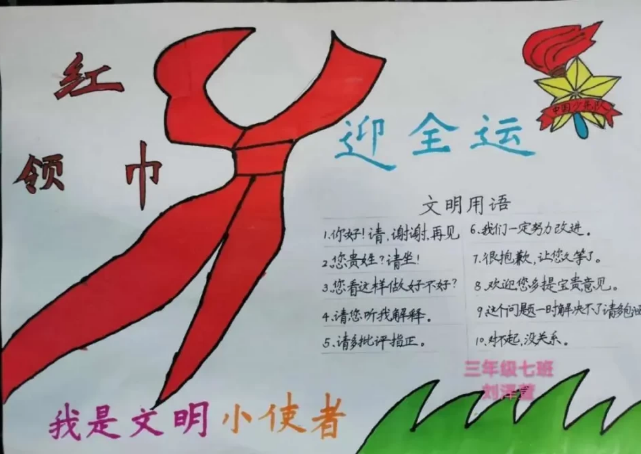 红
领 巾
迎全运
中国少先队
文明用语
1.你好!请、谢谢、再见
2.您贵姓?请坐!
3.您看这样做好不好?
4.请您听我解释。
5.请多批评指正。
6.我们一定努力改进。
7.很抱歉,让您久等了。
8.欢迎您多提宝贵意见。
9.这个问题一时解决不了请多包涵
10.对不起,没关系。
三年级七班
我是文明小使者